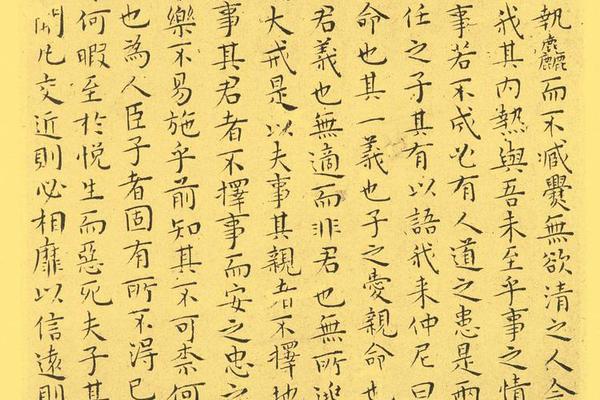 執麤而不臧爨無欲清之人今
我其内熱與吾未至乎事之情
事若不成必有人道之患是兩
任之子其有以語我来仲尼曰
命也其一義也子之愛親命也
君義也無適而非君也無所逃
大戒是以夫事其親者不擇地
事其君者不擇事而安之忠之
樂不易施乎前知其不可柰何
也為人臣子者固有所不得已
何暇至於悅生而惡死夫子其
聞凡交近則必相靡以信遠則